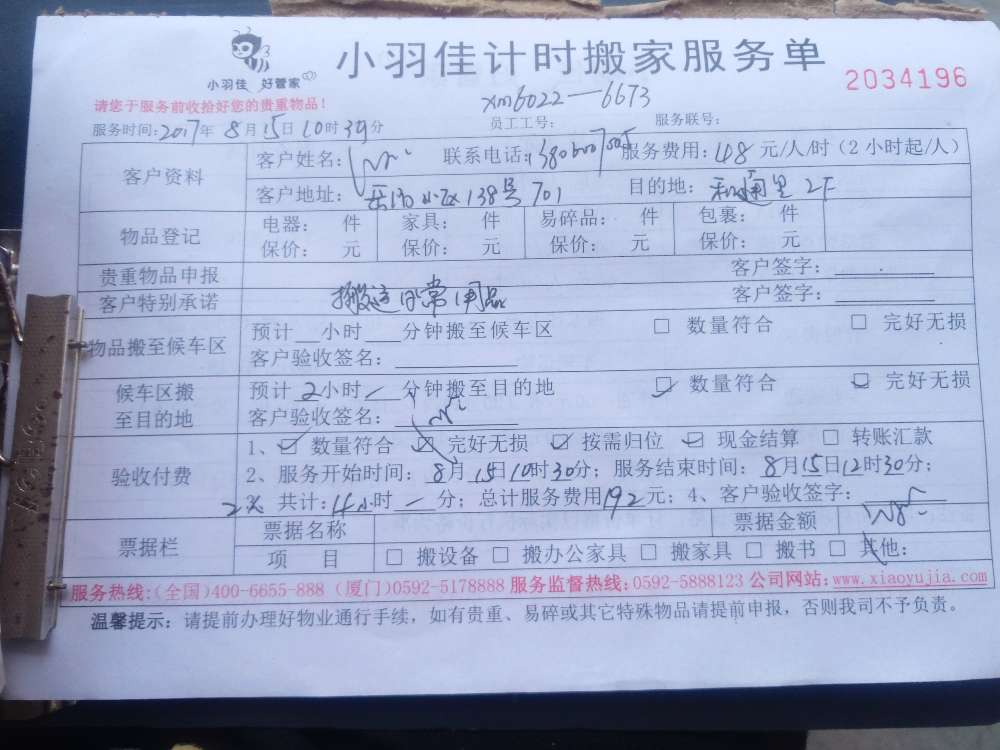 小羽佳计时搬家服务单
小羽佳 好管家
2034196
请您于服务前收拾好您的贵重物品！
xm6022—6673
服务时间：2017年8月15日10时30分 员工工号： 服务联号：
客户资料 客户姓名： 联系电话： 服务费用：48元/人/时（2小时起/人）
客户地址： 138号701 目的地： 2F
物品登记 电器： 件 家具： 件 易碎品： 件 包裹： 件
保价： 元 保价： 元 保价： 元 保价： 元
贵重物品申报 客户签字：
客户特别承诺 搬运日常用品 客户签字：
物品搬至候车区 预计 小时 分钟搬至候车区 □ 数量符合 □ 完好无损
客户验收签名：
候车区搬至目的地 预计2小时 分钟搬至目的地 ☑ 数量符合 ☑ 完好无损
客户验收签名：
验收付费 1、☑ 数量符合 ☑ 完好无损 ☑ 按需归位 ☑ 现金结算 □ 转账汇款
2、服务开始时间：8月15日10时30分；服务结束时间：8月15日12时30分；
2人 共计：4小时一分；总计服务费用192元；4、客户验收签字：
票据栏 票据名称 票据金额
项 目 □ 搬设备 □ 搬办公家具 □ 搬家具 □ 搬书 □ 其他：
服务热线：(全国)400-6655-888 (厦门)0592-5178888 服务监督热线：0592-5888123 公司网站：www.xiaoyujia.com
温馨提示：请提前办理好物业通行手续，如有贵重、易碎或其它特殊物品请提前申报，否则我司不予负责。